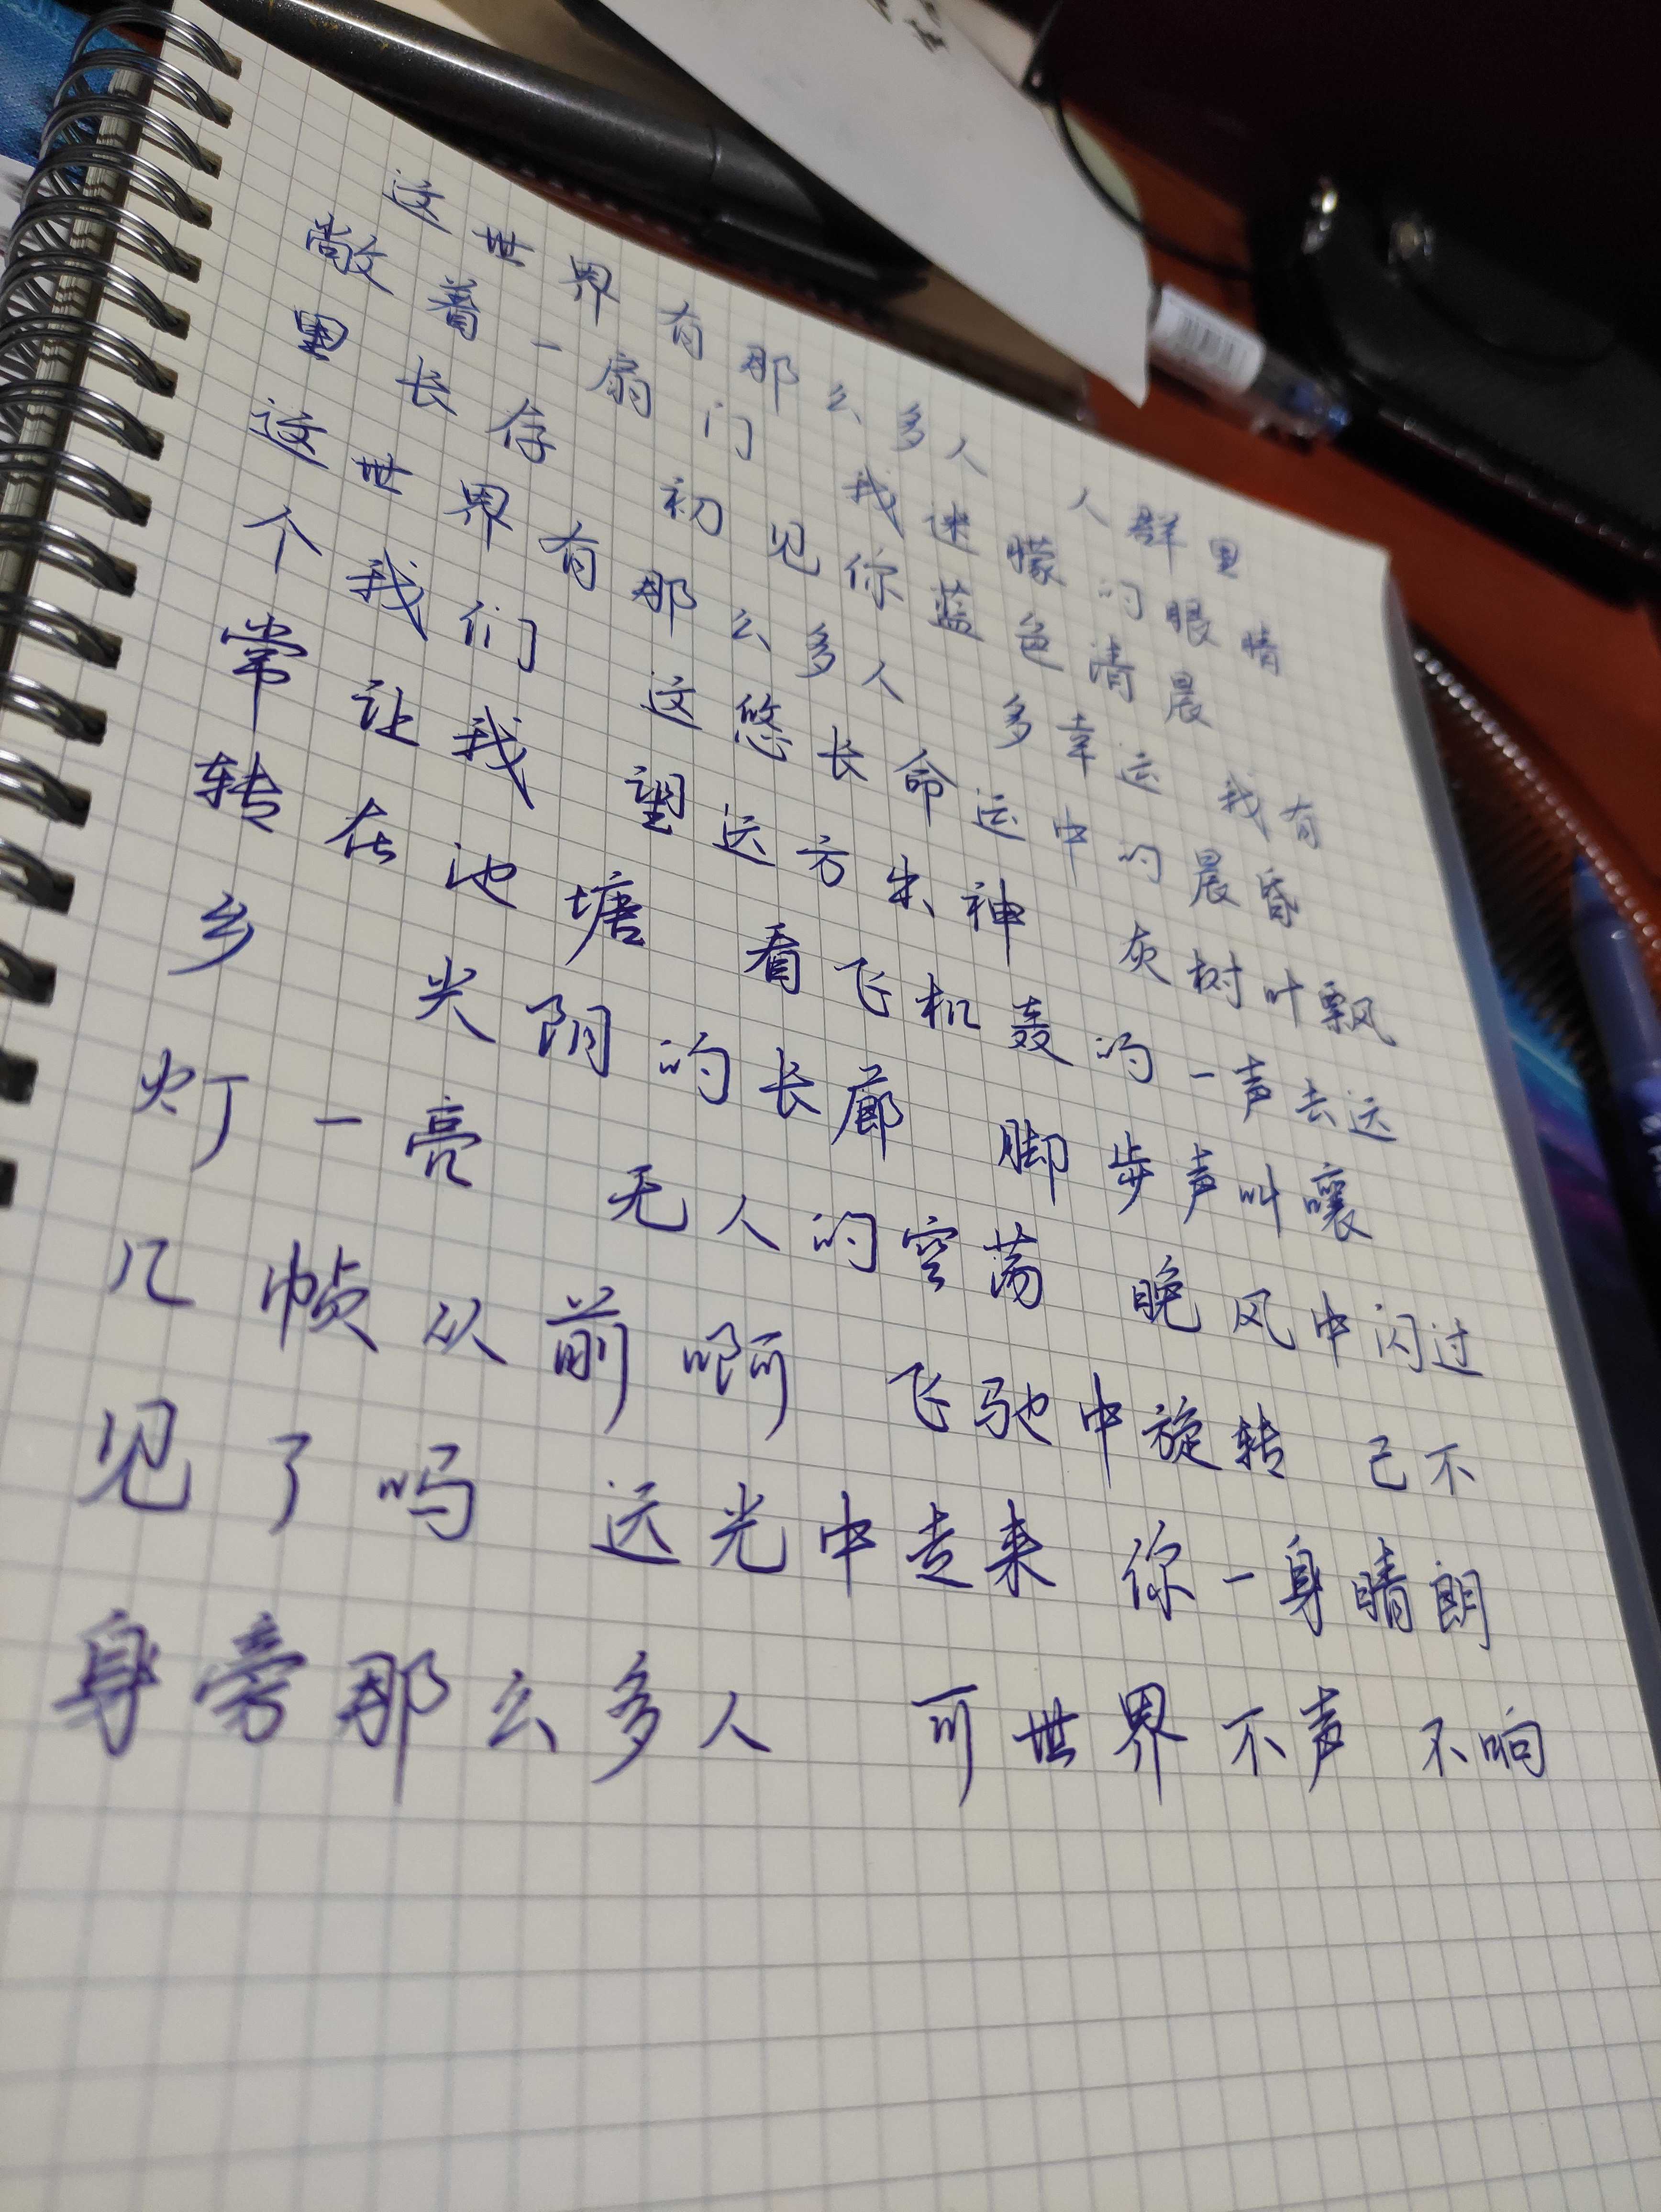 这世界有那么多人 人群里
敞着一扇门 我迷朦的眼睛
里长存 初见你蓝色清晨
这世界有那么多人 多幸运 我有
个我们 这悠长命运中的晨昏
常让我 望远方出神 灰树叶飘
转在池塘 看飞机轰的一声去远
乡 光阴的长廊 脚步声叫嚷
灯一亮 无人的空荡 晚风中闪过
几帧从前啊 飞驰中旋转 已不
见了吗 远光中走来 你一身晴朗
身旁那么多人 可世界不声不响